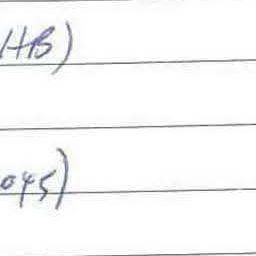 HB)
045)